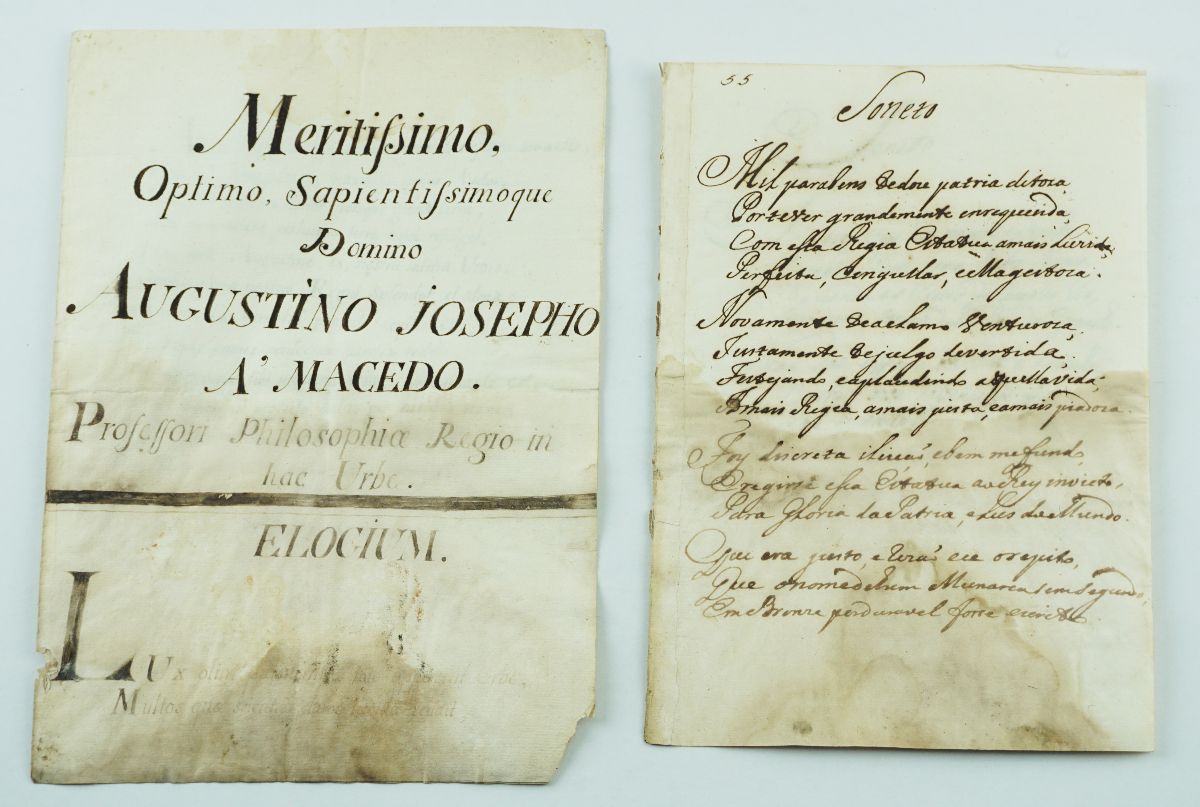 Meritiſsimo,
Optimo, Sapientiſsimoque
Domino
AUGUSTINO JOSEPHO
A' MACEDO.
Profeſsori Philosophiæ Regio in
hac Urbe.
ELOGIUM.
LUx olim
Multos que
55
Soneto
Mil parabens tedou patria ditoza,
Por te ver grandemente enrequecida,
Com esta Regia Estatua amais
Perfeita, Cingullar, e Mageitoza.
Novamente te aclamo Venturoza,
Justamente te julgo devertida,
Festejando, eaplaudindo aquella vida,
Amais Regia, amais justa, eamais piadoza.
Foy discreta ebem me fundo,
Eregirse esta Estatua ao Rey invicto,
Para Gloria da Patria, e Luz do Mundo.
Que era justo, e
Que onome dehum Munarca sem Segundo,
Em Bronze perduravel foce escrito.